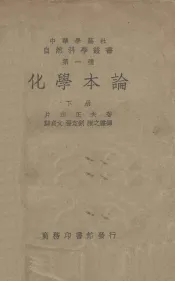 中華學藝社
自然科學叢書
第一種
化學本論
下册
片山正夫著
鄭貞文 張定釗 陳之霖譯
商務印書館發行